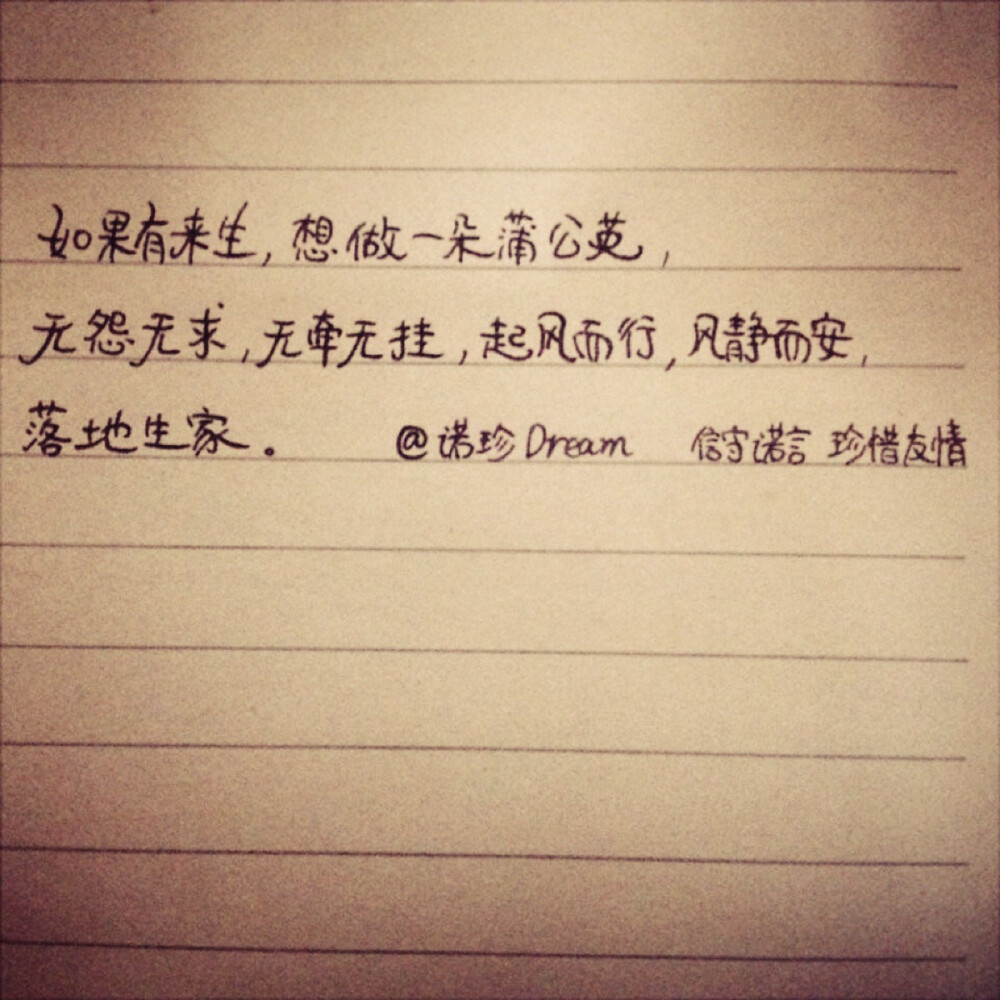 如果有来生,想做一朵蒲公英,
无怨无求,无牵无挂,起风而行,风静而安,
落地生家。 @诺珍Dream 信守诺言 珍惜友情